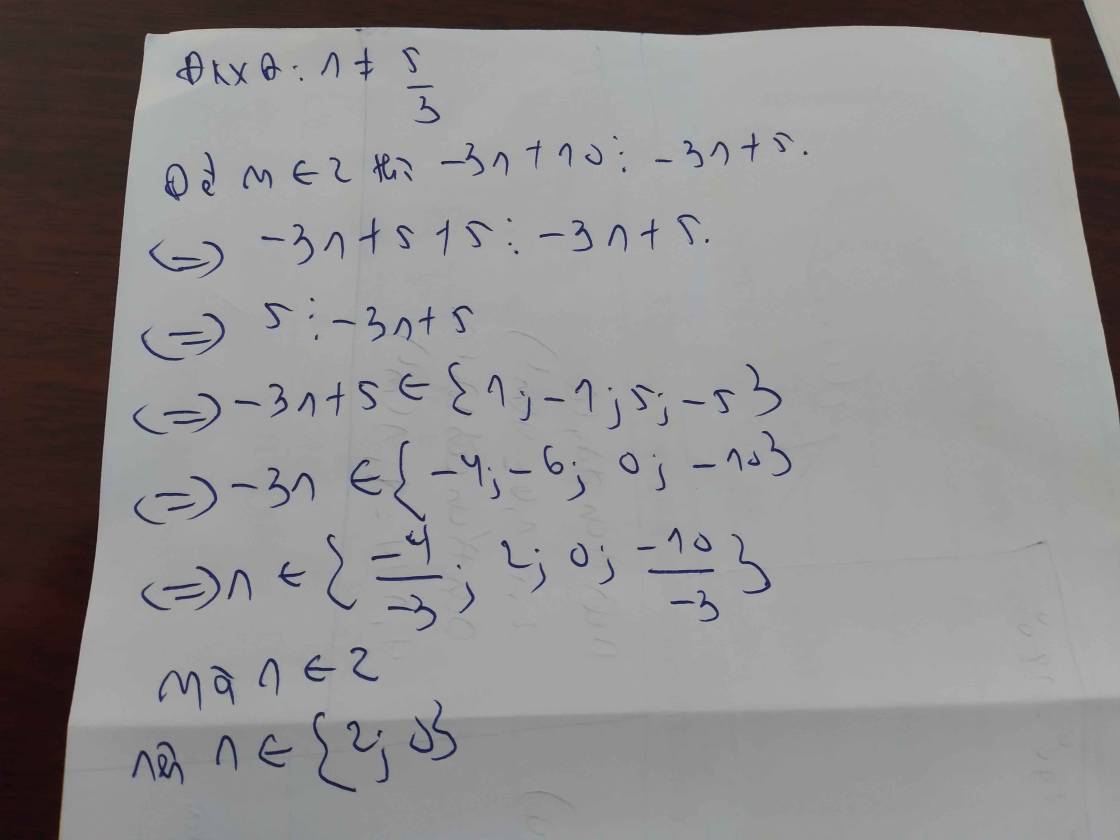 ĐKXĐ: n ≠ 5/3
Để M ∈ Z thì -3n + 10 ⋮ -3n + 5.
(=) -3n + 5 + 5 ⋮ -3n + 5.
(=) 5 ⋮ -3n + 5
(=) -3n + 5 ∈ {1; -1; 5; -5}
(=) -3n ∈ {-4; -6; 0; -10}
(=) n ∈ {-4/-3; 2; 0; -10/-3}
Mà n ∈ Z
nên n ∈ {2; 0}